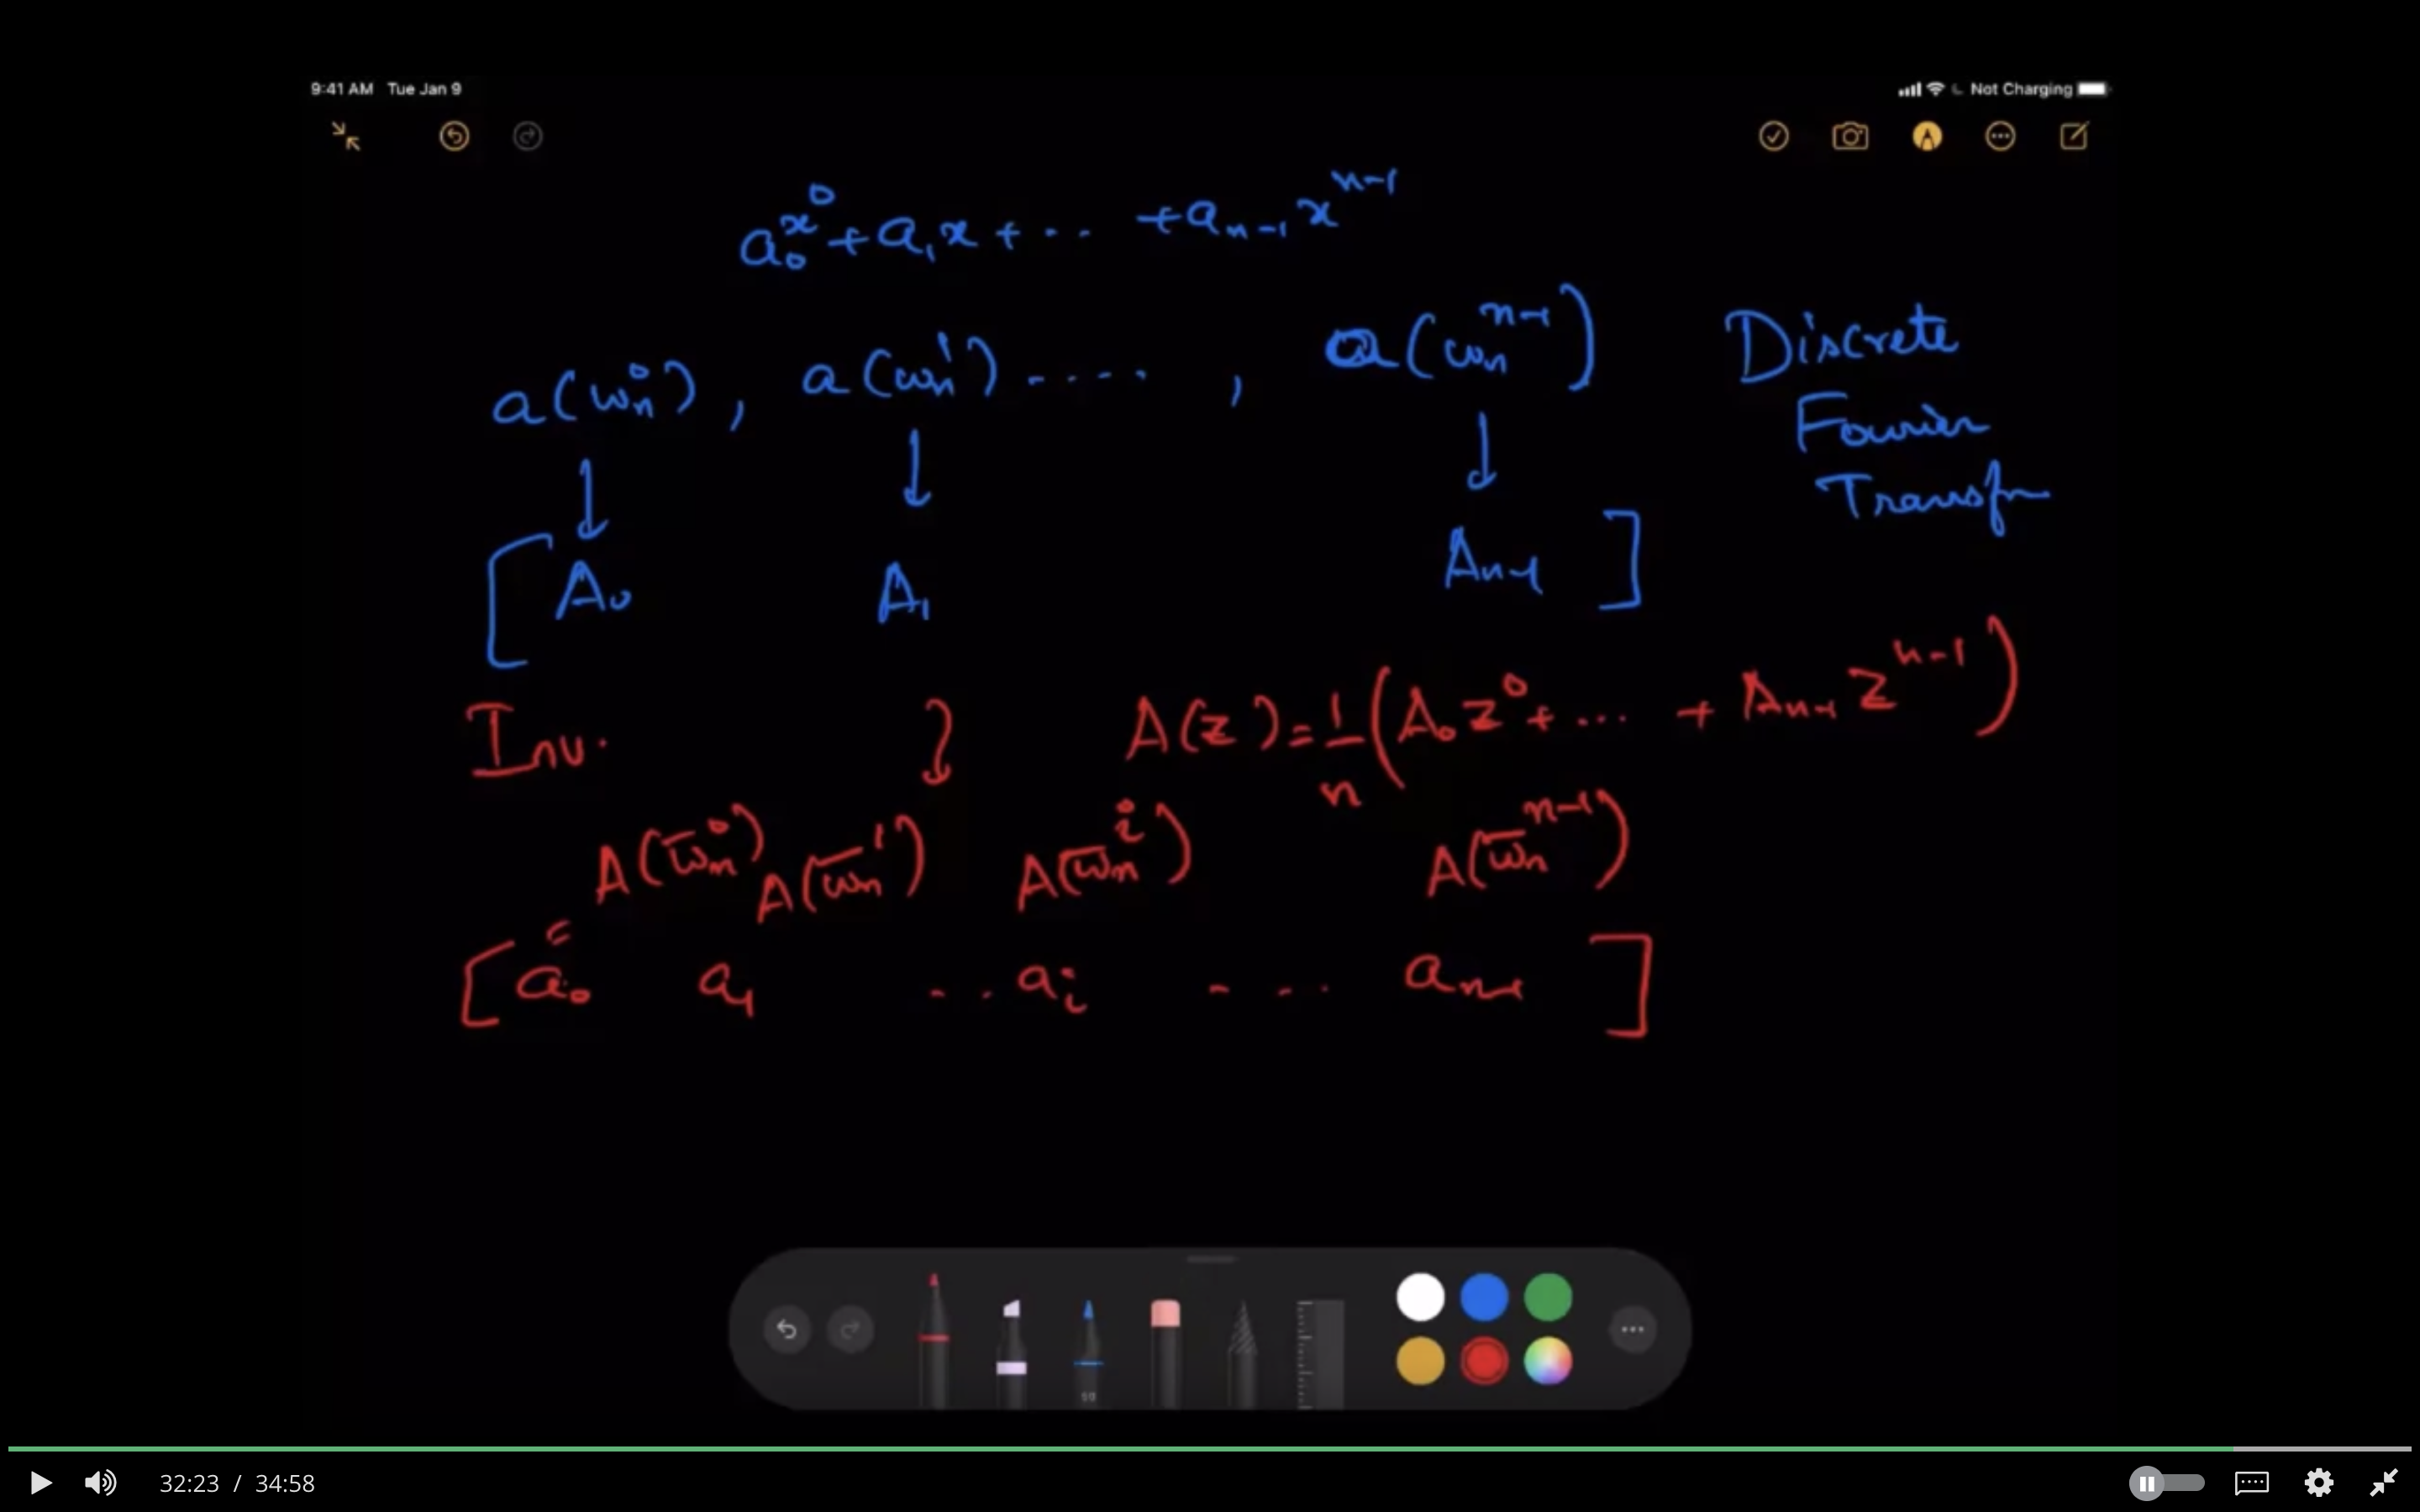 9:41 AM Tue Jan 9 Not Charging
a₀x⁰ + a₁x + ·· + aₙ₋₁xⁿ⁻¹
a(ωₙ⁰), a(ωₙ¹) ····, a(ωₙⁿ⁻¹) Discrete
Fourier
Transfm
[A₀ A₁ Aₙ₋₁]
Inv. A(z) = 1/n (A₀z⁰ + ··· + Aₙ₋₁zⁿ⁻¹)
A(ω̄ₙ⁰) A(ω̄ₙ¹) A(ω̄ₙⁱ) A(ω̄ₙⁿ⁻¹)
=
[a₀ a₁ ·· aᵢ - ··· aₙ₋₁]
50
32:23 / 34:58